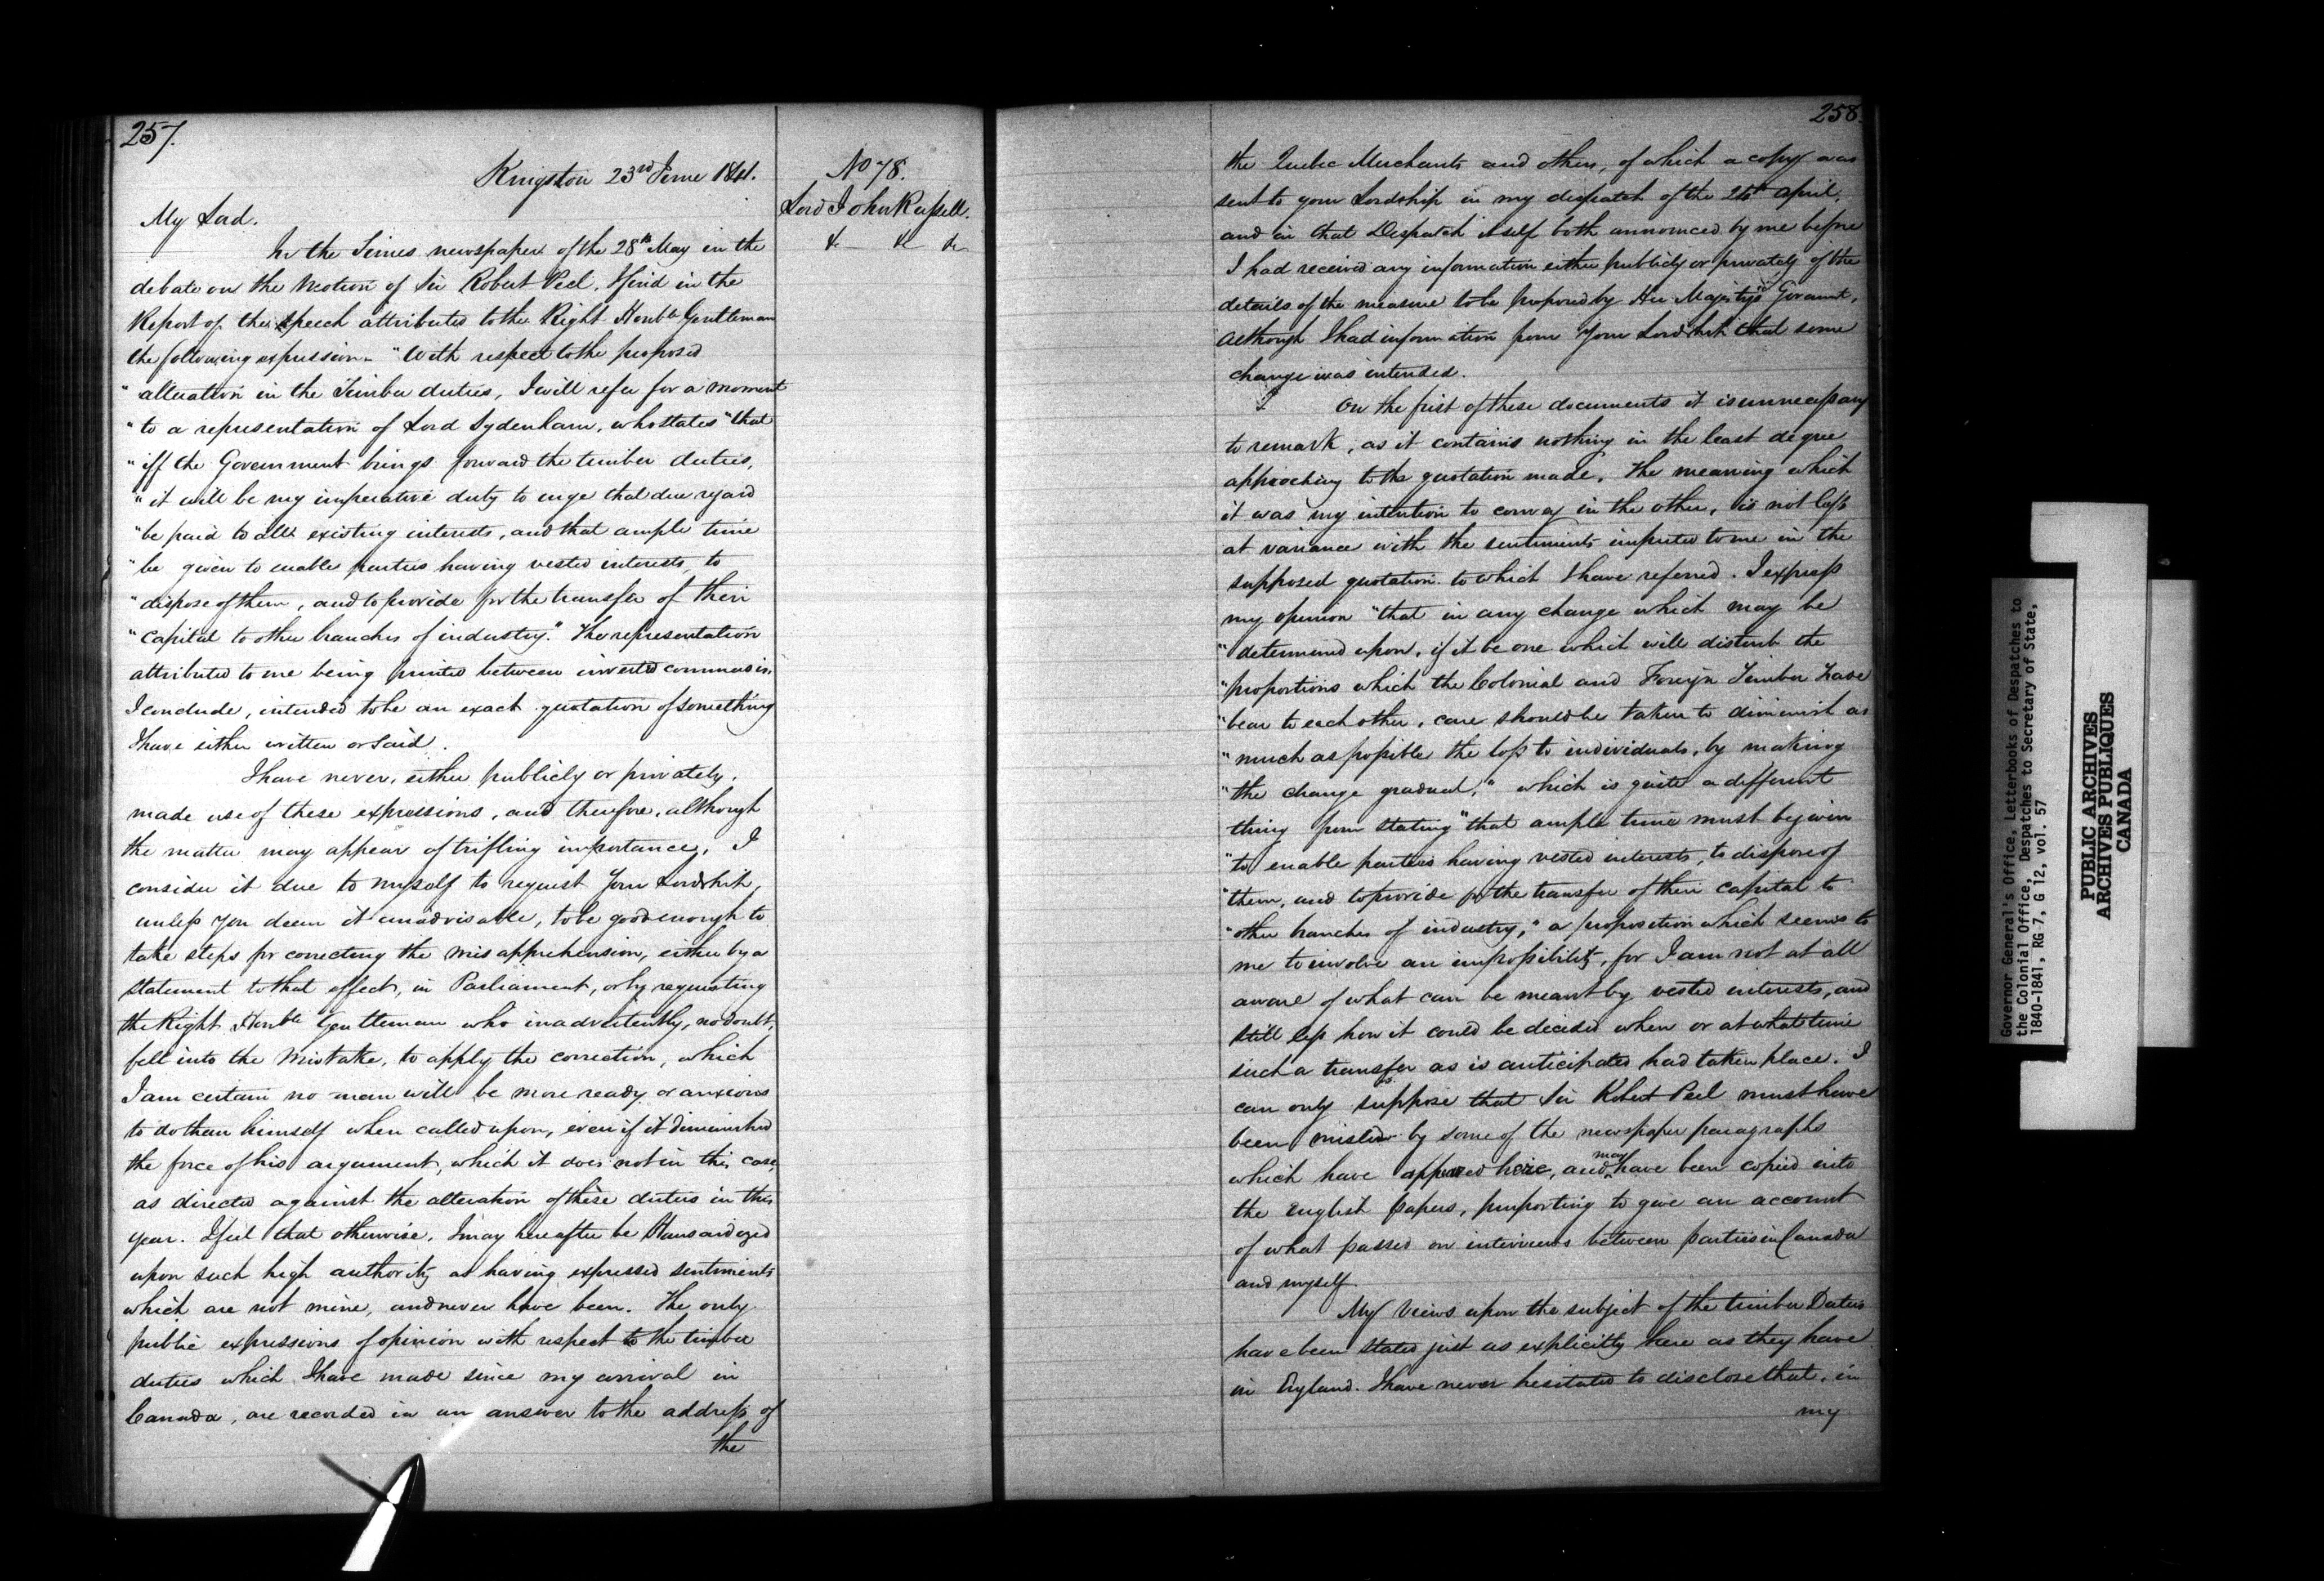 257.
Kingston 23rd June 1841.
No 78.
Lord John Russell.
&c &c &c
My Lord.
In the Times newspaper of the 28th May in the
debate on the Motion of Sir Robert Peel, I find in the
Report of the speech attributed to the Right Honble Gentleman
the following expression - "With respect to the proposed
"alteration in the Timber duties, I will refer for a moment
"to a representation of Lord Sydenham, who states "that
"iff the Government brings forward the timber duties,
"it will be my imperative duty to urge that due regard
"be paid to all existing interests, and that ample time
"be given to enable parties having vested interests, to
"dispose of them, and to provide for the transfer of their
"Capital to other branches of industry." The representation
attributed to me being printed between inverted commas is,
I conclude, intended to be an exact quotation of something
I have either written or said.
I have never, either publicly or privately,
made use of these expressions, and therefore, although
the matter may appear of trifling importance, I
consider it due to myself to request Your Lordship,
unless you deem it unadvisable, to be good enough to
take steps for correcting the misapprehension, either by a
statement to that effect, in Parliament, or by requesting
the Right Honble Gentleman who inadvertently, no doubt,
fell into the Mistake, to apply the correction, which
I am certain no man will be more ready or anxious
to do than himself when called upon, even if it diminished
the force of his argument, which it does not in this case,
as directed against the alteration of these duties in this
year. I feel that otherwise, I may hereafter be Hansardized
upon such high authority as having expressed sentiments
which are not mine, and never have been. The only
public expressions of opinion with respect to the timber
duties which I have made since my arrival in
Canada, are recorded in an answer to the address of
the
258.
the Quebec Merchants and others, of which a copy was
sent to your Lordship in my dispatch of the 26th April,
and in that Despatch itself both announced by me before
I had received any information either publicly or privately of the
details of the measure to be proposed by Her Majesty's Governmt,
although I had information from Your Lordship that some
change was intended.
On the first of these documents it is unnecessary
to remark, as it contains nothing in the least degree
approching to the quotation made. The meaning which
it was my intention to convey in the other, is not less
at variance with the sentiments imputed to me in the
supposed quotation to which I have referred. I express
my opinion "that in any change which may be
"determined upon, if it be one which will disturb the
"proportions which the Colonial and Foreign Timber Trade
"bear to each other, care should be taken to diminish as
"much as possible the loss to individuals, by making
"the change gradual," which is quite a different
thing from stating "that ample time must be given
"to enable parties having vested interests, to dispose of
"them, and to provide for the transfer of their capital to
"other branches of industry," a proposition which seems to
me to involve an impossibility, for I am not at all
aware of what can be meant by vested interests, and
still less how it could be decided when or at what time
such a transfer as is anticipated had taken place. I
can only suppose that Sir Robert Peel must have
been misled by some of the newspaper paragraphs
which have appeared here, and may have been copied into
the English papers, purporting to give an account
of what passed on interviews between parties in Canada
and myself.
My Views upon the subject of the timber Duties
have been stated just as explicitly here as they have
in England. I have never hesitated to disclose that, in
my
Governor General's Office, Letterbooks of Despatches to
the Colonial Office, Despatches to Secretary of State,
1840-1841, RG 7, G 12, vol. 57
PUBLIC ARCHIVES
ARCHIVES PUBLIQUES
CANADA